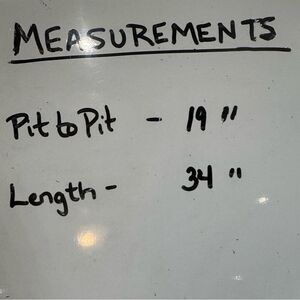 MEASUREMENTS
Pit to Pit - 19 "
Length - 34 "